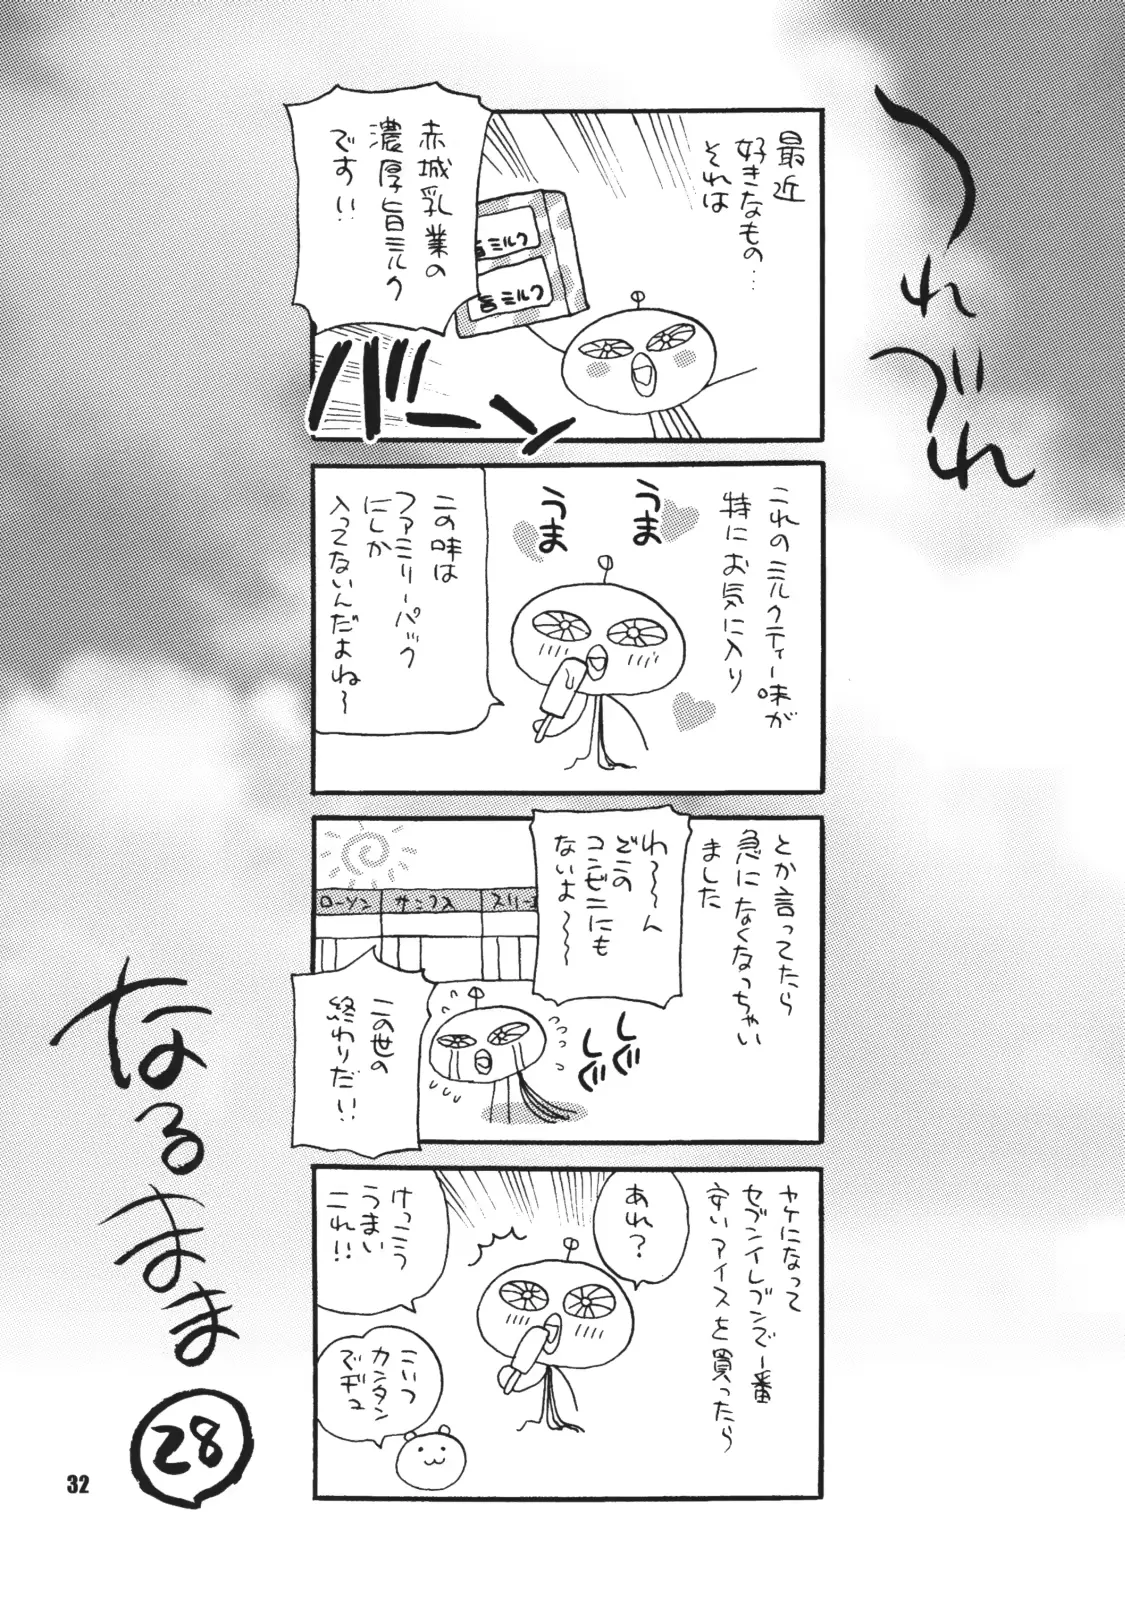 つれづれ
なるまま
28
最近
好きなもの…
それは
赤城乳業の
濃厚旨ミルク
です!!
旨ミルク
旨ミルク
ババーン
これのミルクティー味が
特にお気に入り
うま
うま
この味は
ファミリーパック
にしか
入ってないんだよね〜
とか言ってたら
急になくなっちゃい
ました
わ〜〜ん
どこの
コンビニにも
ないよ〜〜〜
ローソン
サンクス
スリー
しぐ
しぐ
この世の
終わりだ!!
ヤケになって
セブンイレブンで一番
安いアイスを買ったら
あれ?
けっこう
うまい
コレ!!
こいつ
カンタン
でヂュ
32